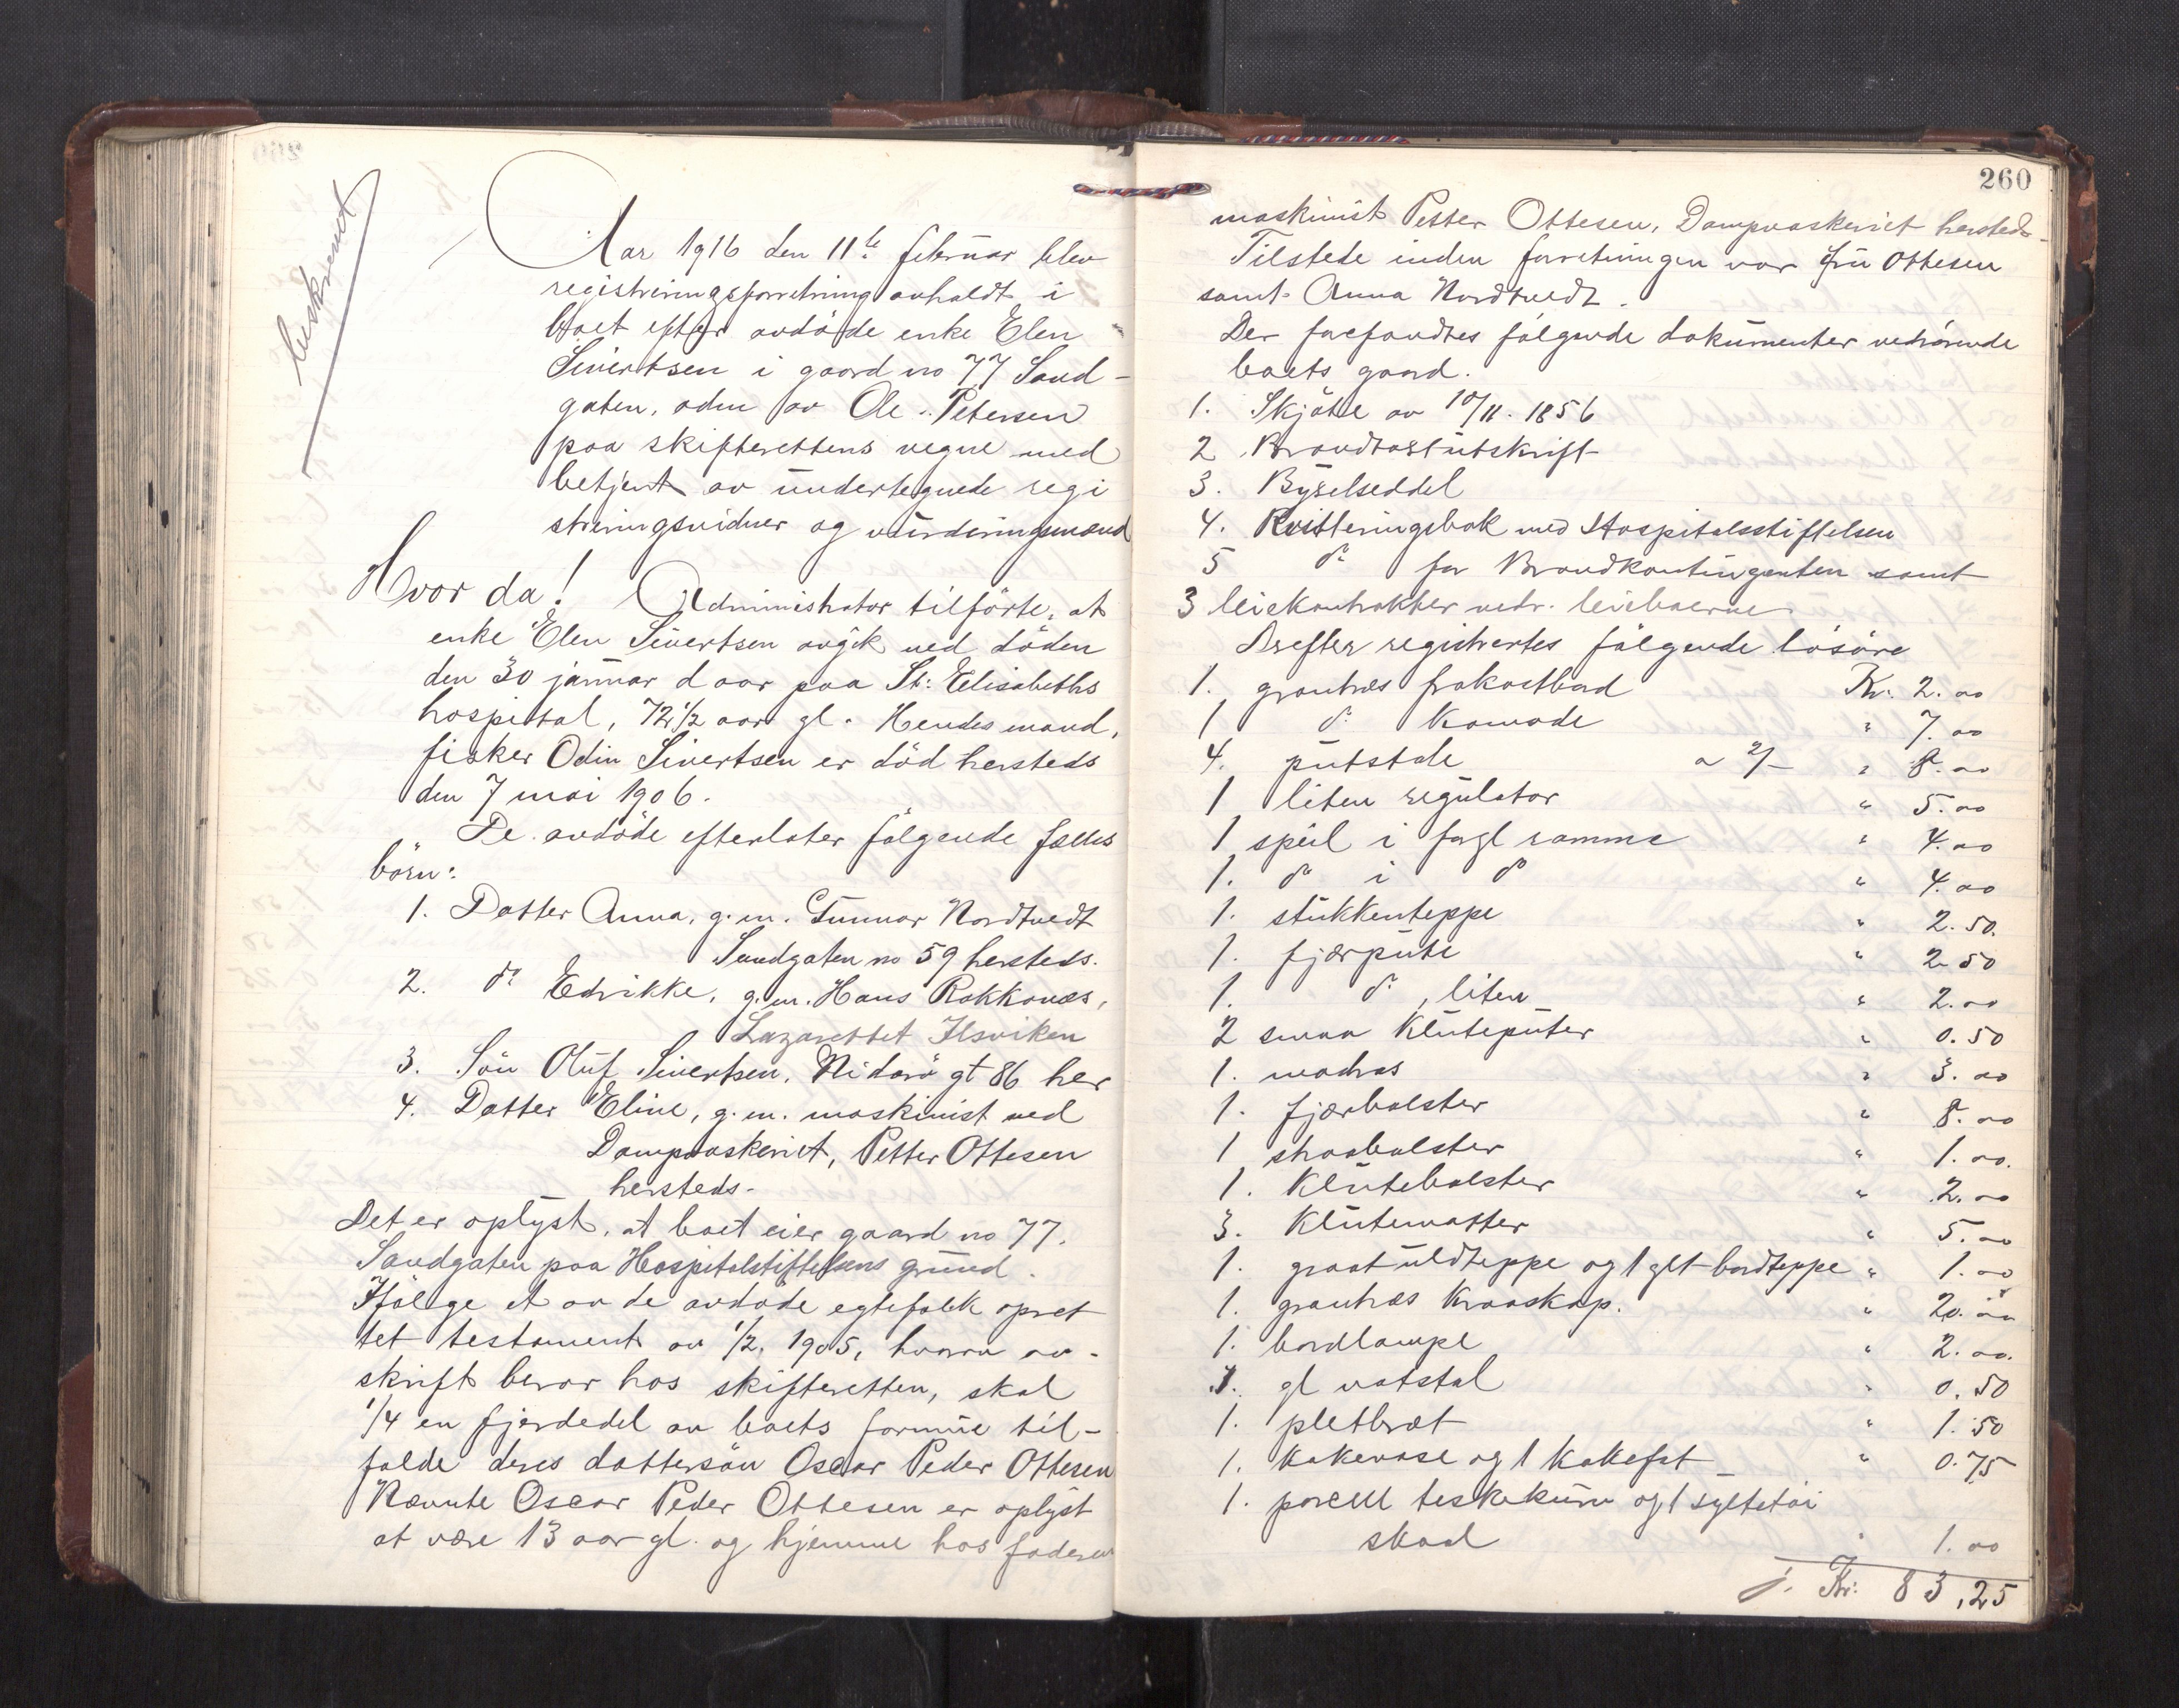 beskrevet
Aar 1916 den 11te februar blev
registreringsforretning avholdt i
boet efter avdöde enke Elen
Sivertsen i gaard no 77 Sand-
gaten, adm av Ole Petersen
paa skifterettens vegne med
betjent av undertegnede regi
streringsvidner og vurderingsmænd
Hvor da! Administrator tilförte, at
enke Elen Sivertsen avgik ved döden
den 30 januar d aar paa St: Elisabeths
hospital, 72 1/2 aar gl. Hendes mand,
fisker Odin Sivertsen er död hersteds
den 7 mai 1906.
De avdöde efterlater fölgende fælles
börn:
1. Datter Anna, g.m. Gunnar Nordtvedt
Sandgaten no 59 hersteds.
2. do Edrikke, g.m. Hans Rokkones,
Lazarettet Ilsviken
3. Sön Oluf Sivertsen, Nidarö gt 86 her
4. Datter Eline, g.m. maskinist ved
Dampvaskeriet, Petter Ottesen
hersteds-
Det er oplyst, at boet eier gaard no 77.
Sandgaten paa Hospitalstiftelsens grund.
Ifölge et av de avdöde egtefolk opret
tet testament av 1/2. 1905, hvorav av-
skrift beror hos skifteretten, skal
1/4 en fjerdedel av boets formue til-
falde deres dattersön Oscar Peder Ottesen
Nævnte Oscar Peder Ottesen er oplyst
at være 13 aar gl. og hjemme hos faderen
260
maskinist Petter Ottesen, Dampvaskeriet hersteds-
Tilstede inden forretningen var fru Ottesen
samt Anna Nordtvedt.
Der forefandtes fölgende dokumenter vedrörende
boets gaard.
1. Skjöte av 10/11. 1856
2 Brandtastutskrift
3. Bygselseddel
4. Kvitteringsbok med Hospitalsstiftelsen
5 do for Brandkontingenten samt
3 leiekontrakter vedr. leieboerne
Derefter registrertes fölgende lösöre
1. grantræs frokostbord Kr. 2.00
1 do Komode " 7.00
4. putstole a 2/- " 8.00
1 liten regulator " 5.00
1 speil i forgl ramme " 4.00
1. do i do " 4.00
1. stukkenteppe " 2.50.
1. fjærpute " 2.50
1. do, liten " 2.00
2 smaa Kluteputer " 0.50
1. madras " 3.00
1. fjærbolster " 8.00
1 straabolster " 1.00.
1. Klutebolster " 2.00
3. Klutematter " 5.00
1. graat uldteppe og 1 glt bordteppe " 1.00
1. grantræs Kroaskap. " 20.00
1. bordlampe " 2.00.
1. gl vatstol " 0.50
1. pletbræt " 1.50
1. Kakevase og 1 Kakefat " 0.75
1. porcell teskekurv og 1 syltetöi
skaal " 1.00
T. Kr: 83,25